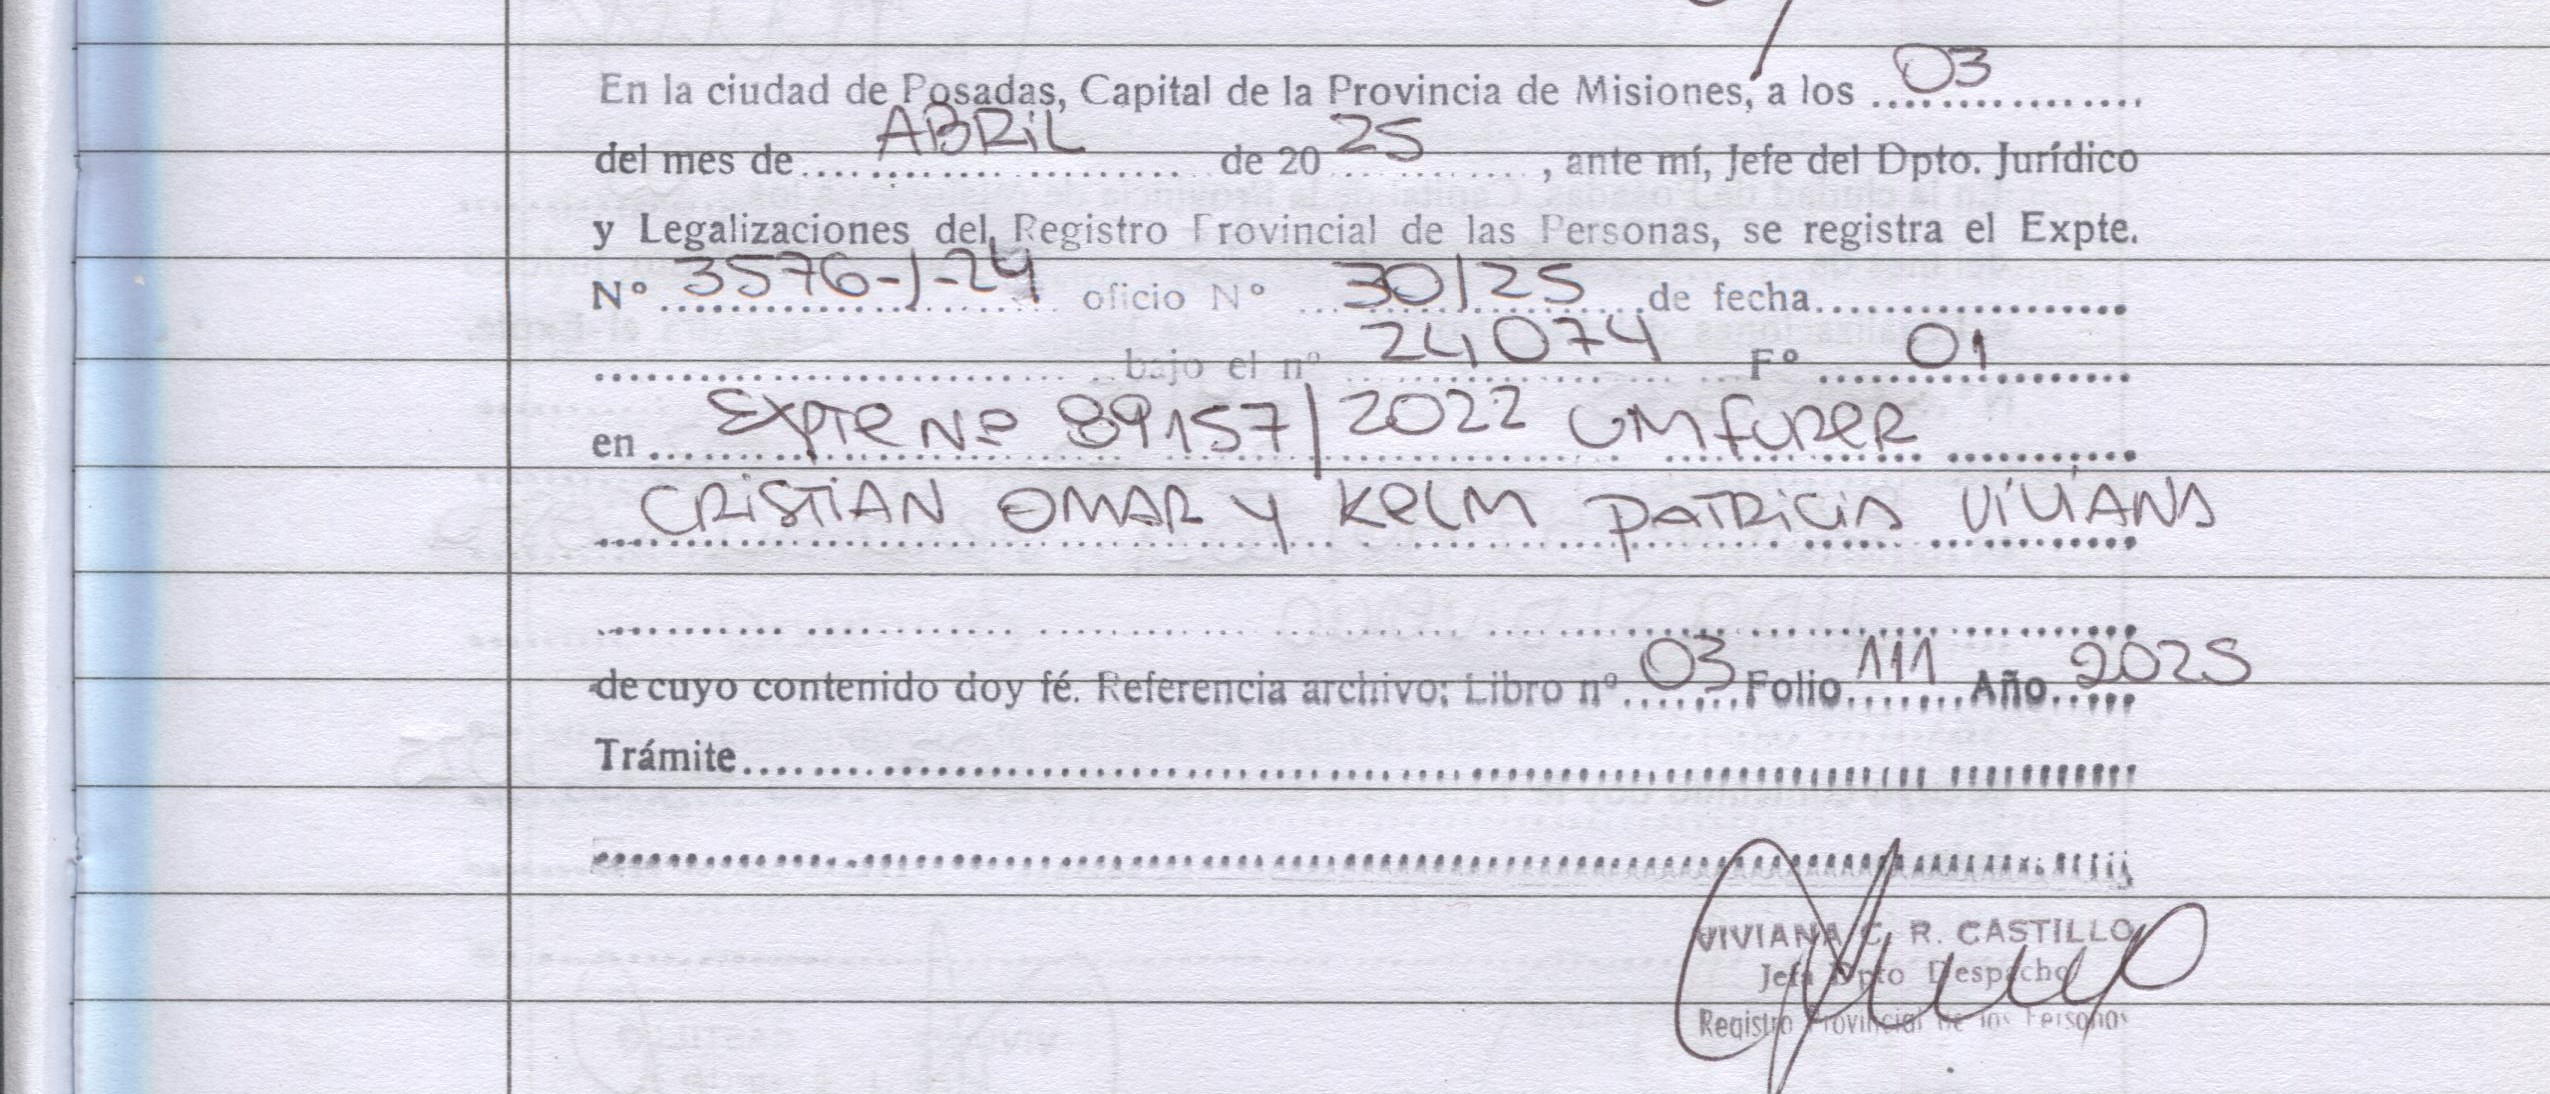 En la ciudad de Posadas, Capital de la Provincia de Misiones, a los 03
del mes de ABRiL de 20 25 , ante mí, Jefe del Dpto. Jurídico
y Legalizaciones del Registro Provincial de las Personas, se registra el Expte.
N° 3576-J-24 oficio N° 30/25 de fecha
bajo el n° 24074 F° 01
en Expte Nº 89157/2022
CRiSTiAN OMAR y KeLM PATRiCiA ViViANA
de cuyo contenido doy fé. Referencia archivo: Libro n° 03 Folio 111 Año 2025
Trámite
VIVIANA C. R. CASTILLO
Jefa Dpto Despacho
Registro Provincial de las Personas